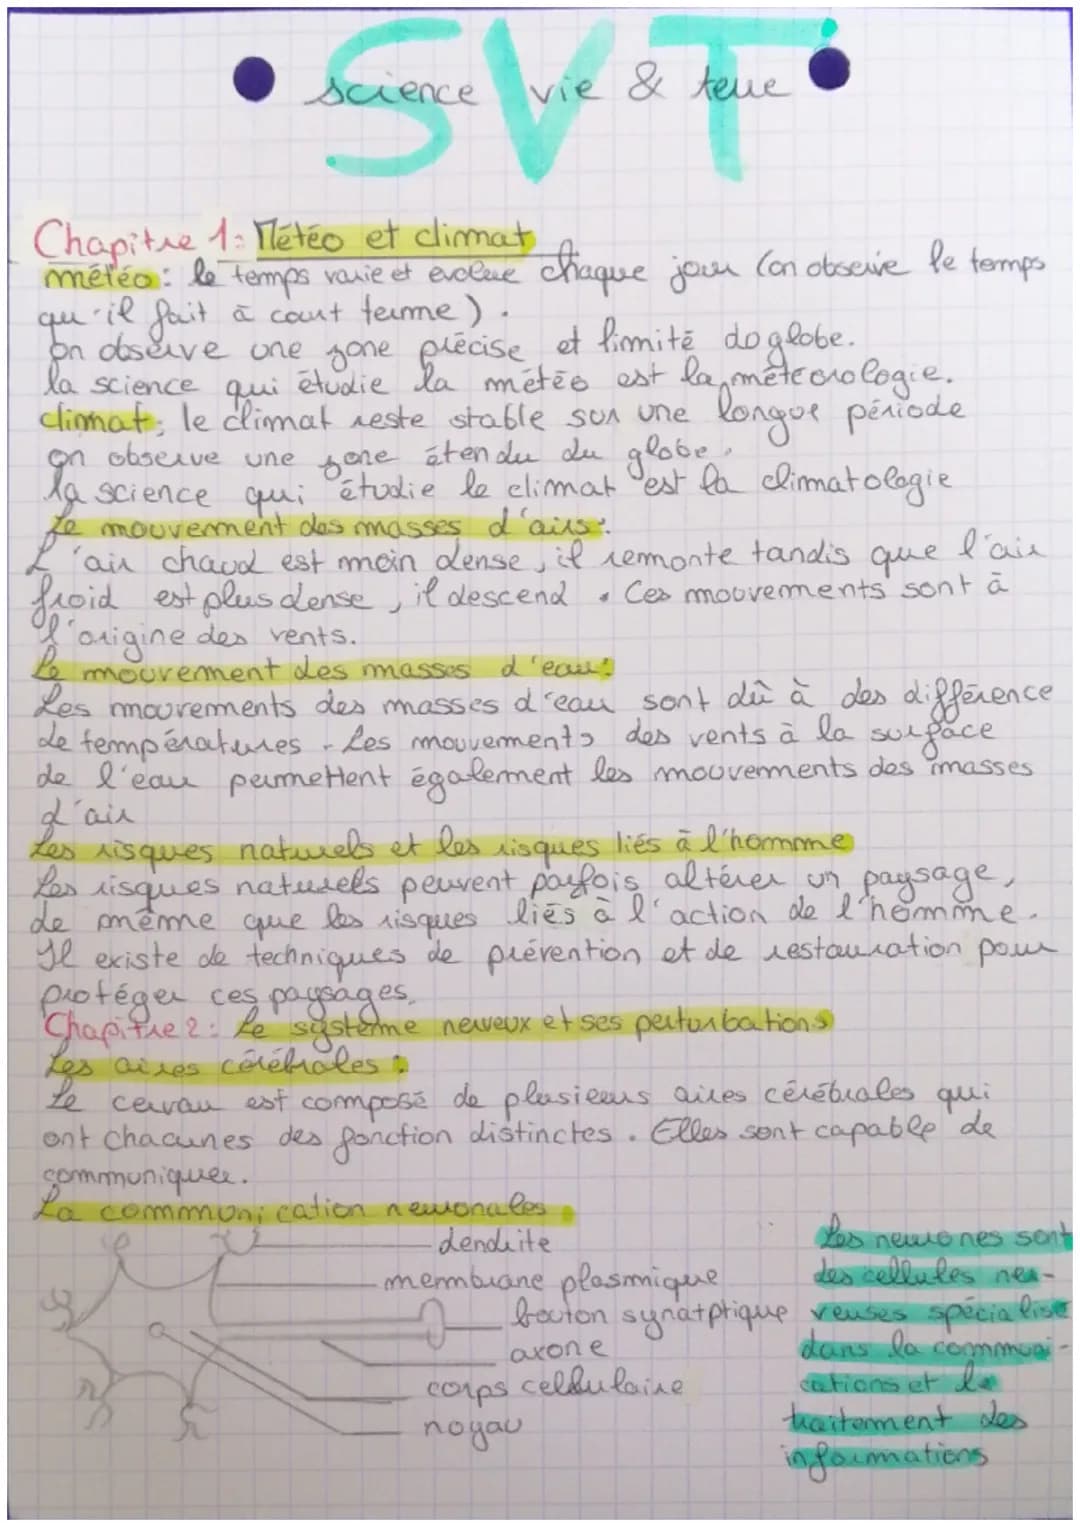 SVT
science vie & terre
Chapitre 1: Météo et climat
météo : le temps varie et évolue chaque jour (on observe le temps
qu'il fait à court terme).
on observe une zone précise et limité do globe.
la science qui étudie la météo est la météorologie.
climat : le climat reste stable sur une longue période
on observe une zone étendu du globe.
la science qui étudie le climat est la climatologie
Le mouvement des masses d'airs :
L'air chaud est moin dense, il remonte tandis que l'air
froid est plus dense, il descend. Ces mouvements sont à
l'origine des vents.
Le mouvement des masses d'eau :
Les mouvements des masses d'eau sont dû à des différence
de températures. Les mouvements des vents à la surface
de l'eau permettent également les mouvements des masses
d'air
Les risques naturels et les risques liés à l'homme
Les risques naturels peuvent parfois altérer un paysage,
de même que les risques liés à l'action de l'homme.
Il existe de techniques de prévention et de restauration pour
protéger ces paysages.
Chapitre 2 : Le système nerveux et ses perturbations
Les aires cérébrales :
Le cervau est composé de plusieurs aires cérébrales qui
ont chacunes des fonction distinctes. Elles sont capable de
communiquer.
La communication neuronales
dendrite
membrane plasmique
bouton synatptique
axone
corps cellulaire
noyau
Les neurones sont
des cellules ner-
veuses spécialisé
dans la communi-
cations et le
traitement des
informations